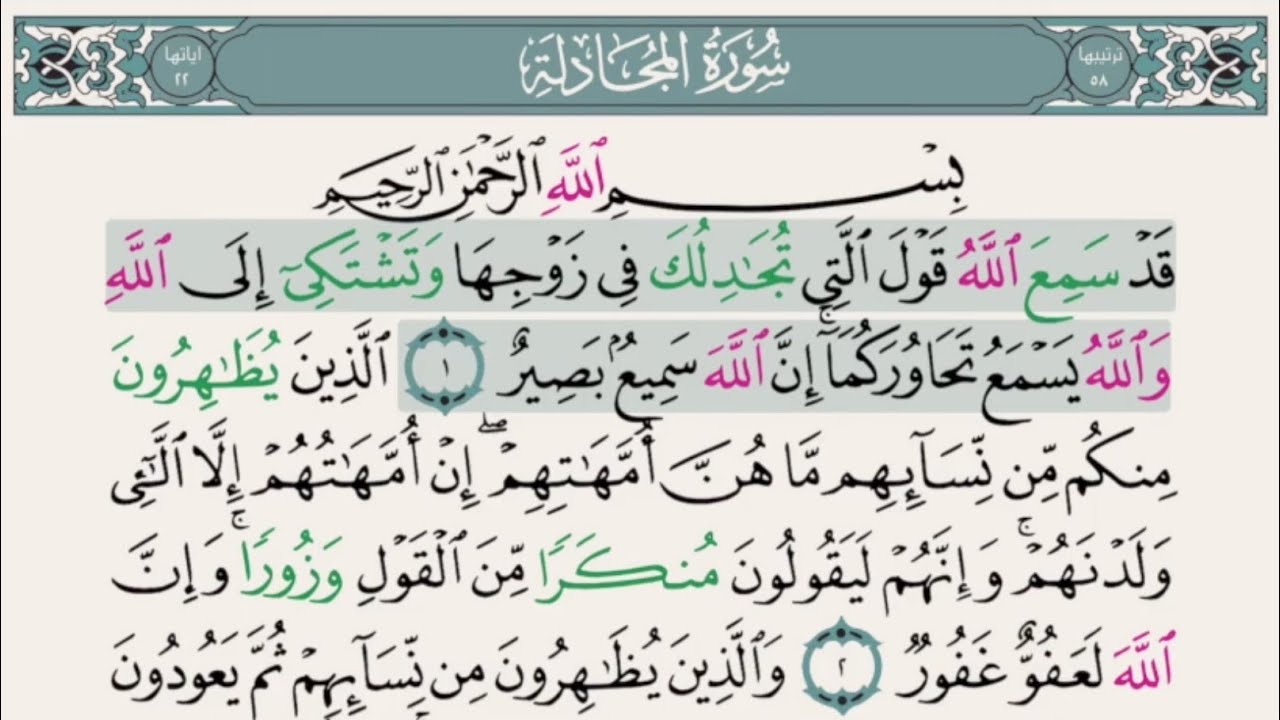 ترتيبها ٥٨
سُورَةُ المُجَادلَةِ
اياتها ٢٢
بِسْمِ ٱللَّهِ ٱلرَّحْمَٰنِ ٱلرَّحِيمِ
قَدْ سَمِعَ ٱللَّهُ قَوْلَ ٱلَّتِي تُجَٰدِلُكَ فِي زَوْجِهَا وَتَشْتَكِيٓ إِلَى ٱللَّهِ
وَٱللَّهُ يَسْمَعُ تَحَاوُرَكُمَآۚ إِنَّ ٱللَّهَ سَمِيعُۢ بَصِيرٌ ١ ٱلَّذِينَ يُظَٰهِرُونَ
مِنكُم مِّن نِّسَآئِهِم مَّا هُنَّ أُمَّهَٰتِهِمْۖ إِنْ أُمَّهَٰتُهُمْ إِلَّا ٱلَّٰٓـِٔي
وَلَدْنَهُمْۚ وَإِنَّهُمْ لَيَقُولُونَ مُنكَرًا مِّنَ ٱلْقَوْلِ وَزُورًاۚ وَإِنَّ
ٱللَّهَ لَعَفُوٌّ غَفُورٌ ٢ وَٱلَّذِينَ يُظَٰهِرُونَ مِن نِّسَآئِهِمْ ثُمَّ يَعُودُونَ